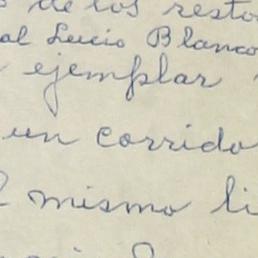 de los resto
al Lucio Blanco
ejemplar
un corrido
mismo li